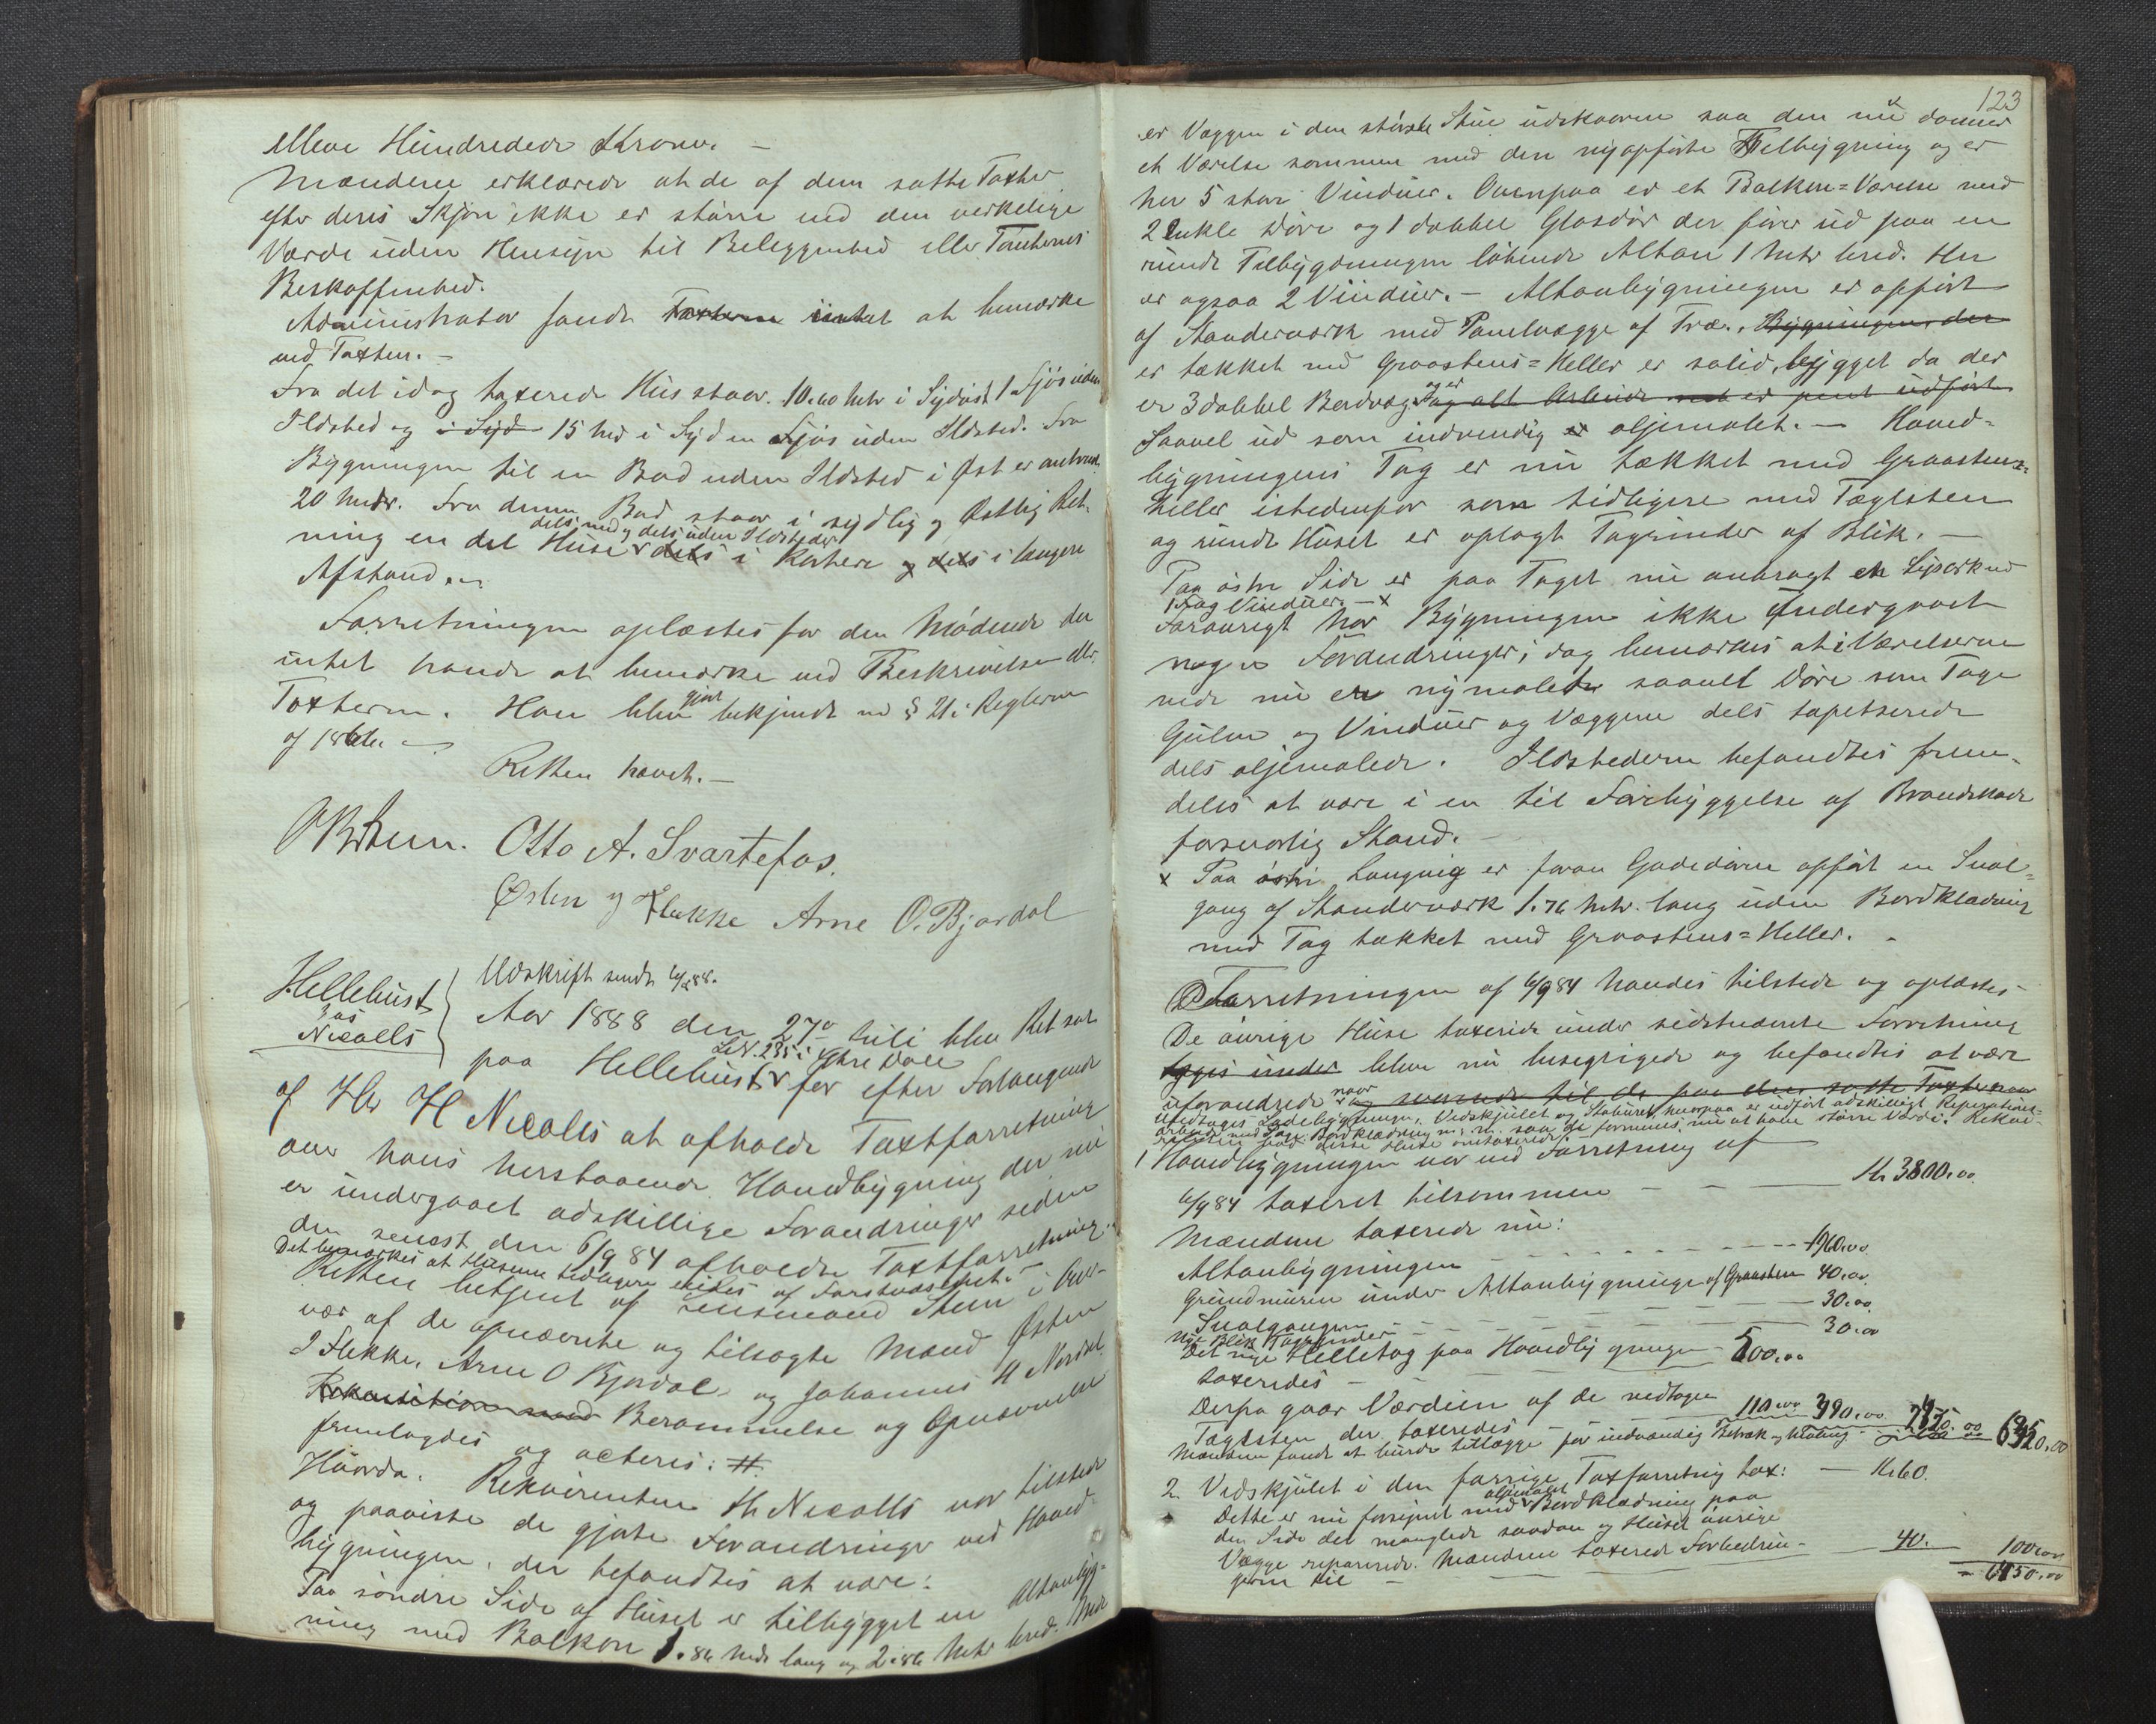 elleve Hundrede Kroner. —
Mændene erklærede at de af dem satte Taxter
efter deres Skjøn ikke er større end den verkelige
Værdi uden Hensyn til Beliggenhed eller Tomternes
Beskaffenhed.
Administrator fandt Taxterne intet at bemærke
ved Taxten. —
Fra det idag taxerede Hus staar 10.60 Metr i Sydost 1 Fjøs uden
Ildsted og i Syd 15 Met i Syd en Fjøs uden Ildsted. Fra
Bygningen til en Bod uden Ildsted i Øst er
20 Metr. Fra denne Bod staar i sydlig og Østlig Ret-
dels med og dels uden Ildsteder
ning en del Huse dels i kortere og dels i længere
Afstand.
Forretningen oplæstes for den Mødende der
intet havde at bemærke ved Beskrivelsen eller
Taxterne. Han blev gjort bekjendt med § 21 i Reglerne
af
Retten hævet. —
Otto A. Svartefos.
Østen J Flekke Arne O. Bjordal
Udskrift sendt 4/8 88.
Hellehust
Nicolls
Aar 1888 den 27de Juli blev Ret sat
paa Hellehust i Øvre Dale for efter Forlangende
af Hr H Nicolls at afholde Taxtforretning
over hans herstaaende Hovedbygning der nu
er undergaaet adskillige Forandringer siden
den senest den 6/9 84 afholdte Taxtforretning.
Det bemærkes at Husene tidligere eiedes af
Retten betjent af Lensmand Steen i Over-
vær af de opnævnte og tilsagte Mænd Østen
J Flekke, Arne O Bjordal og Johannes H Nordal
Rekvisition med Berammelse og Opnævnelse
fremlagdes og acteres: #
Hvorda.
Rekvirenten H. Nicolls var tilstede
og paaviste de gjorte Forandringer ved Hoved-
bygningen, der befandtes at være:
Paa søndre Side af Huset er tilbygget en Altanbyg-
ning med Balkon 1.86 Metr lang og 2.86 Metr bred. Med
123
er Væggen i den største Stue udskaaren saa den nu danner
et Værelse sammen med den nyopførte Tilbygning og er
her 5 store Vinduer. Ovenpaa er et Balkon=Værelse med
2 enkle Døre og 1 dobbel Glasdør der fører ud paa en
rundt Tilbygningen løbende Altan 1 Metr bred. Her
er ogsaa 2 Vinduer. — Altanbygningen er opført
af Standerværk med Panelvægge af Træ. Bygningen, der
er tækket med Graastens=Heller er solid bygget da der
er 3 dobbel Bordvæg og er og alt Arbeide er pent udført
saavel ud som indvendig er oljemalet. — Hoved-
bygningens Tag er nu tækket med Graastens-
heller istedenfor som tidligere med Taglsten
og rundt Huset er oplagt Tagrender af Blik. —
Paa østre Side er paa Taget nu anbragt et
1 Fag Vinduer. — x
Forøvrigt har Bygningen ikke Undergaaet
nogen Forandringer; dog bemærkes at Værelserne
nede nu er nymalede saavel Døre som Tage
Gulve og Vinduer og Væggene dels tapetserede
dels oljemalede. Ildstederne befandtes frem-
deles at være i en til Forebyggelse af Brandskade
forsvarlig Stand. —
x Paa østre Langvæg er foran Gadedøren opført en Sval-
gang af Standerværk 1.76 Metr. lang uden Bordklædning
med Tag tækket med Graastens=Heller. —
Forretningen af 6/9 84 havdes tilstede og oplæstes
De øvrige Huse taxerede under sidstnævnte Forretning
blev nu besigtigede og befandtes at være
uforandrede naar
undtages Vedskjulet og Staburet, hvorpaa er udført adskilligt Reparations-
arbeide med Bordklædning m.m. saa de formenes nu at have større Værdi.
1 Hovedbygningen var ved Forretning af
6/9 84 taxeret tilsammen — Kr 3800.00
Mændene taxerede nu:
Altanbygningen — 1960.00
Grundmuren under Altanbygningen af Graasten 40.00
Svalgangen — 30.00
Nye Blik Tagrender — 30.00
Det nye Helletag paa Hovedbygningen 500.00
taxeredes —
Derfra gaar Værdien af de nedtagne
Taglsten der taxeredes — 110.00 390.00
Mændene fandt at burde tillægge for indvendig Betræk og Maling
2. Vedskjulet i den forrige Taxforretning tax: — Kr 60.
Dette er nu forsynet med oljemalet Bordklædning paa
den Side det manglede saadan og Huset øvrige
Vægge reparerede. Mændene taxerede Forbedrin-
gerne til — 40. 100.00